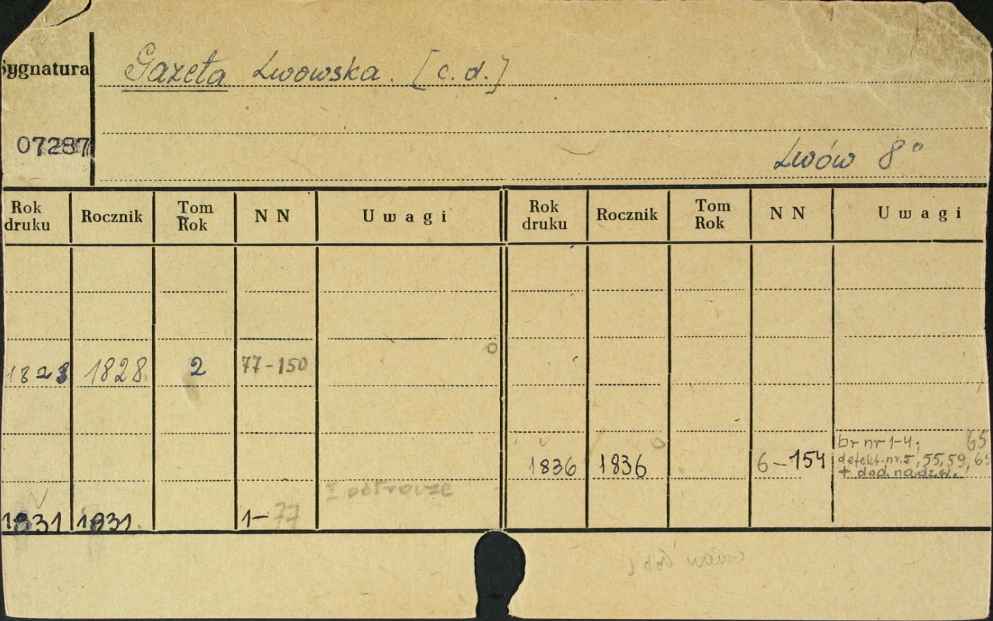 Sygnatura
Gazeta Lwowska. [c. d.]
07287
Lwów 8°
Rok druku Rocznik Tom Rok N N Uwagi Rok druku Rocznik Tom Rok N N Uwagi
1828 1828. 2 77-150
br nr 1-4; 65
1836 1836 6-154 defekt. nr. 5, 55, 59, 6
+ dod. nadzw.
1831 1831. 1-77